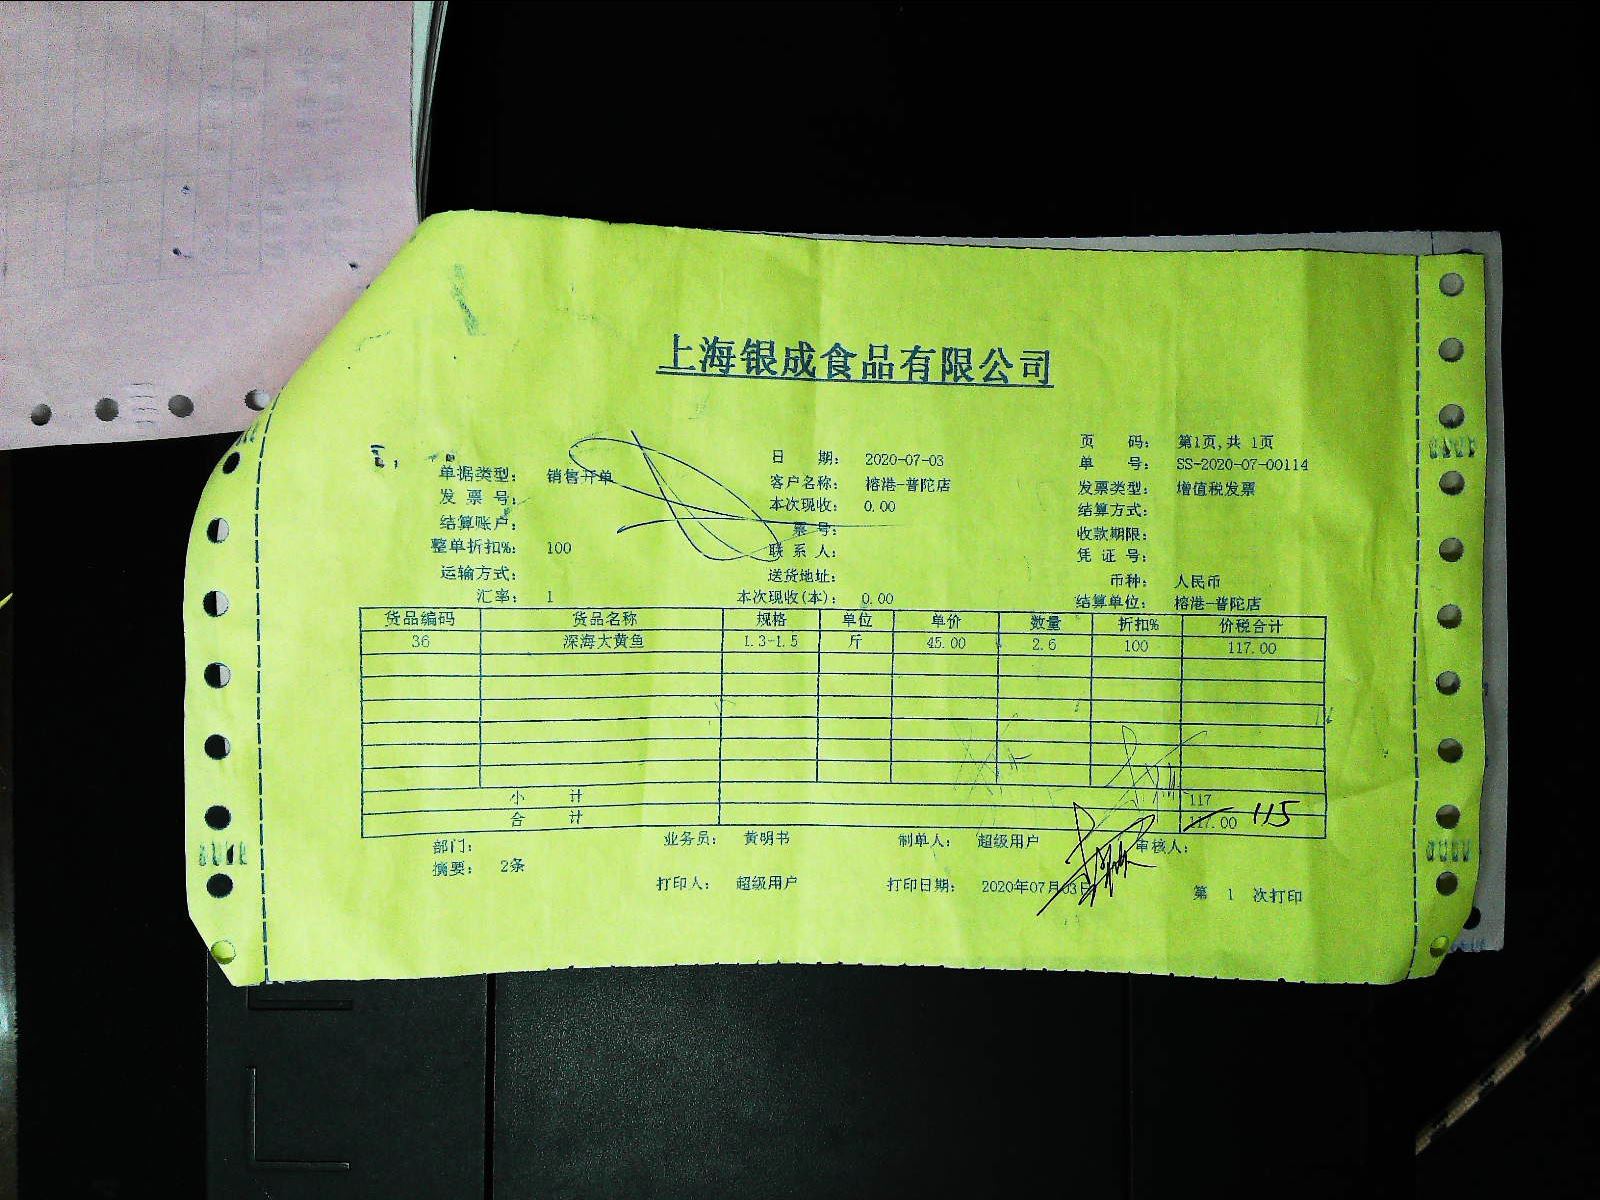 上海银成食品有限公司
页 码: 第1页,共 1页
单据类型: 销售开单 日 期: 2020-07-03 单 号: SS-2020-07-00114
发 票 号: 客户名称: 榕港-普陀店 发票类型: 增值税发票
结算账户: 本次现收: 0.00 结算方式:
整单折扣%: 100 票 号: 收款期限:
联 系 人: 凭 证 号:
运输方式: 送货地址: 币种: 人民币
汇率: 1 本次现收(本): 0.00 结算单位: 榕港-普陀店
货品编码 货品名称 规格 单位 单价 数量 折扣% 价税合计
36 深海大黄鱼 1.3-1.5 斤 45.00 2.6 100 117.00
小 计 117
合 计 117.00 115
部门: 业务员: 黄明书 制单人: 超级用户 审核人:
摘要: 2条
打印人: 超级用户 打印日期: 2020年07月03日 第 1 次打印